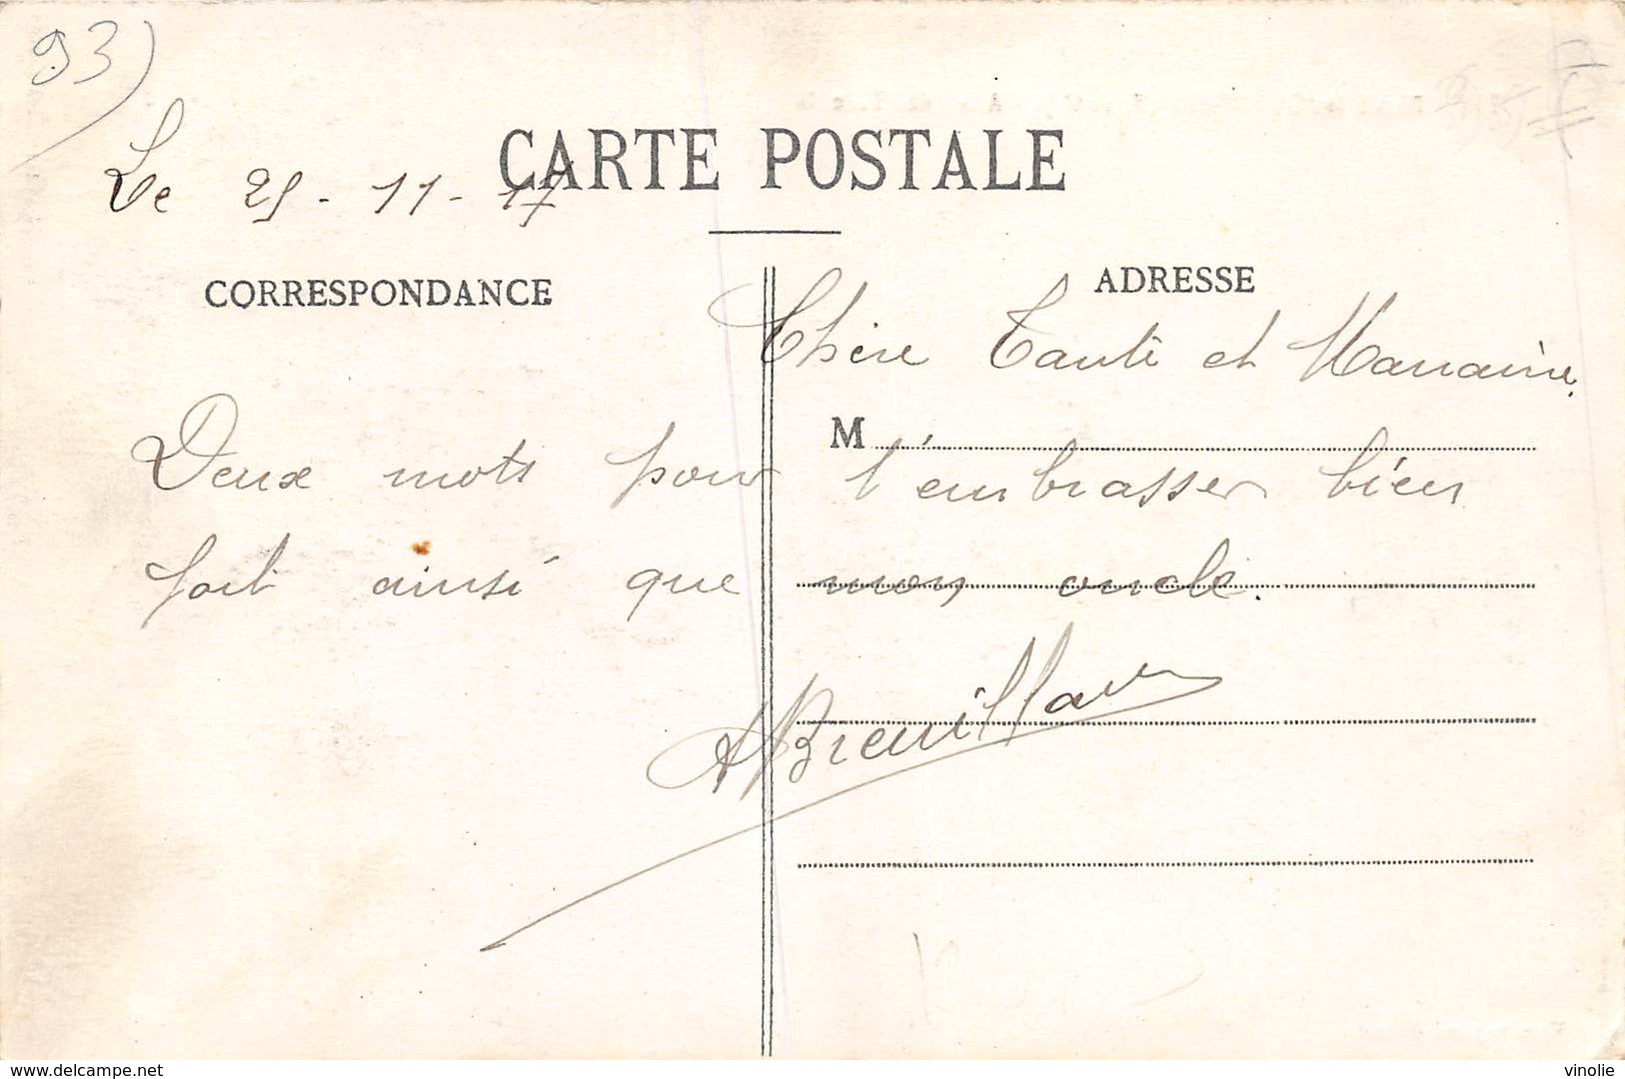 93)
CARTE POSTALE
Le 25-11-17
CORRESPONDANCE
ADRESSE
Chère Tante et Marraine,
M
Deux mots pour t'embrasser bien
fort ainsi que mon oncle.
www.delcampe.net
vinolie